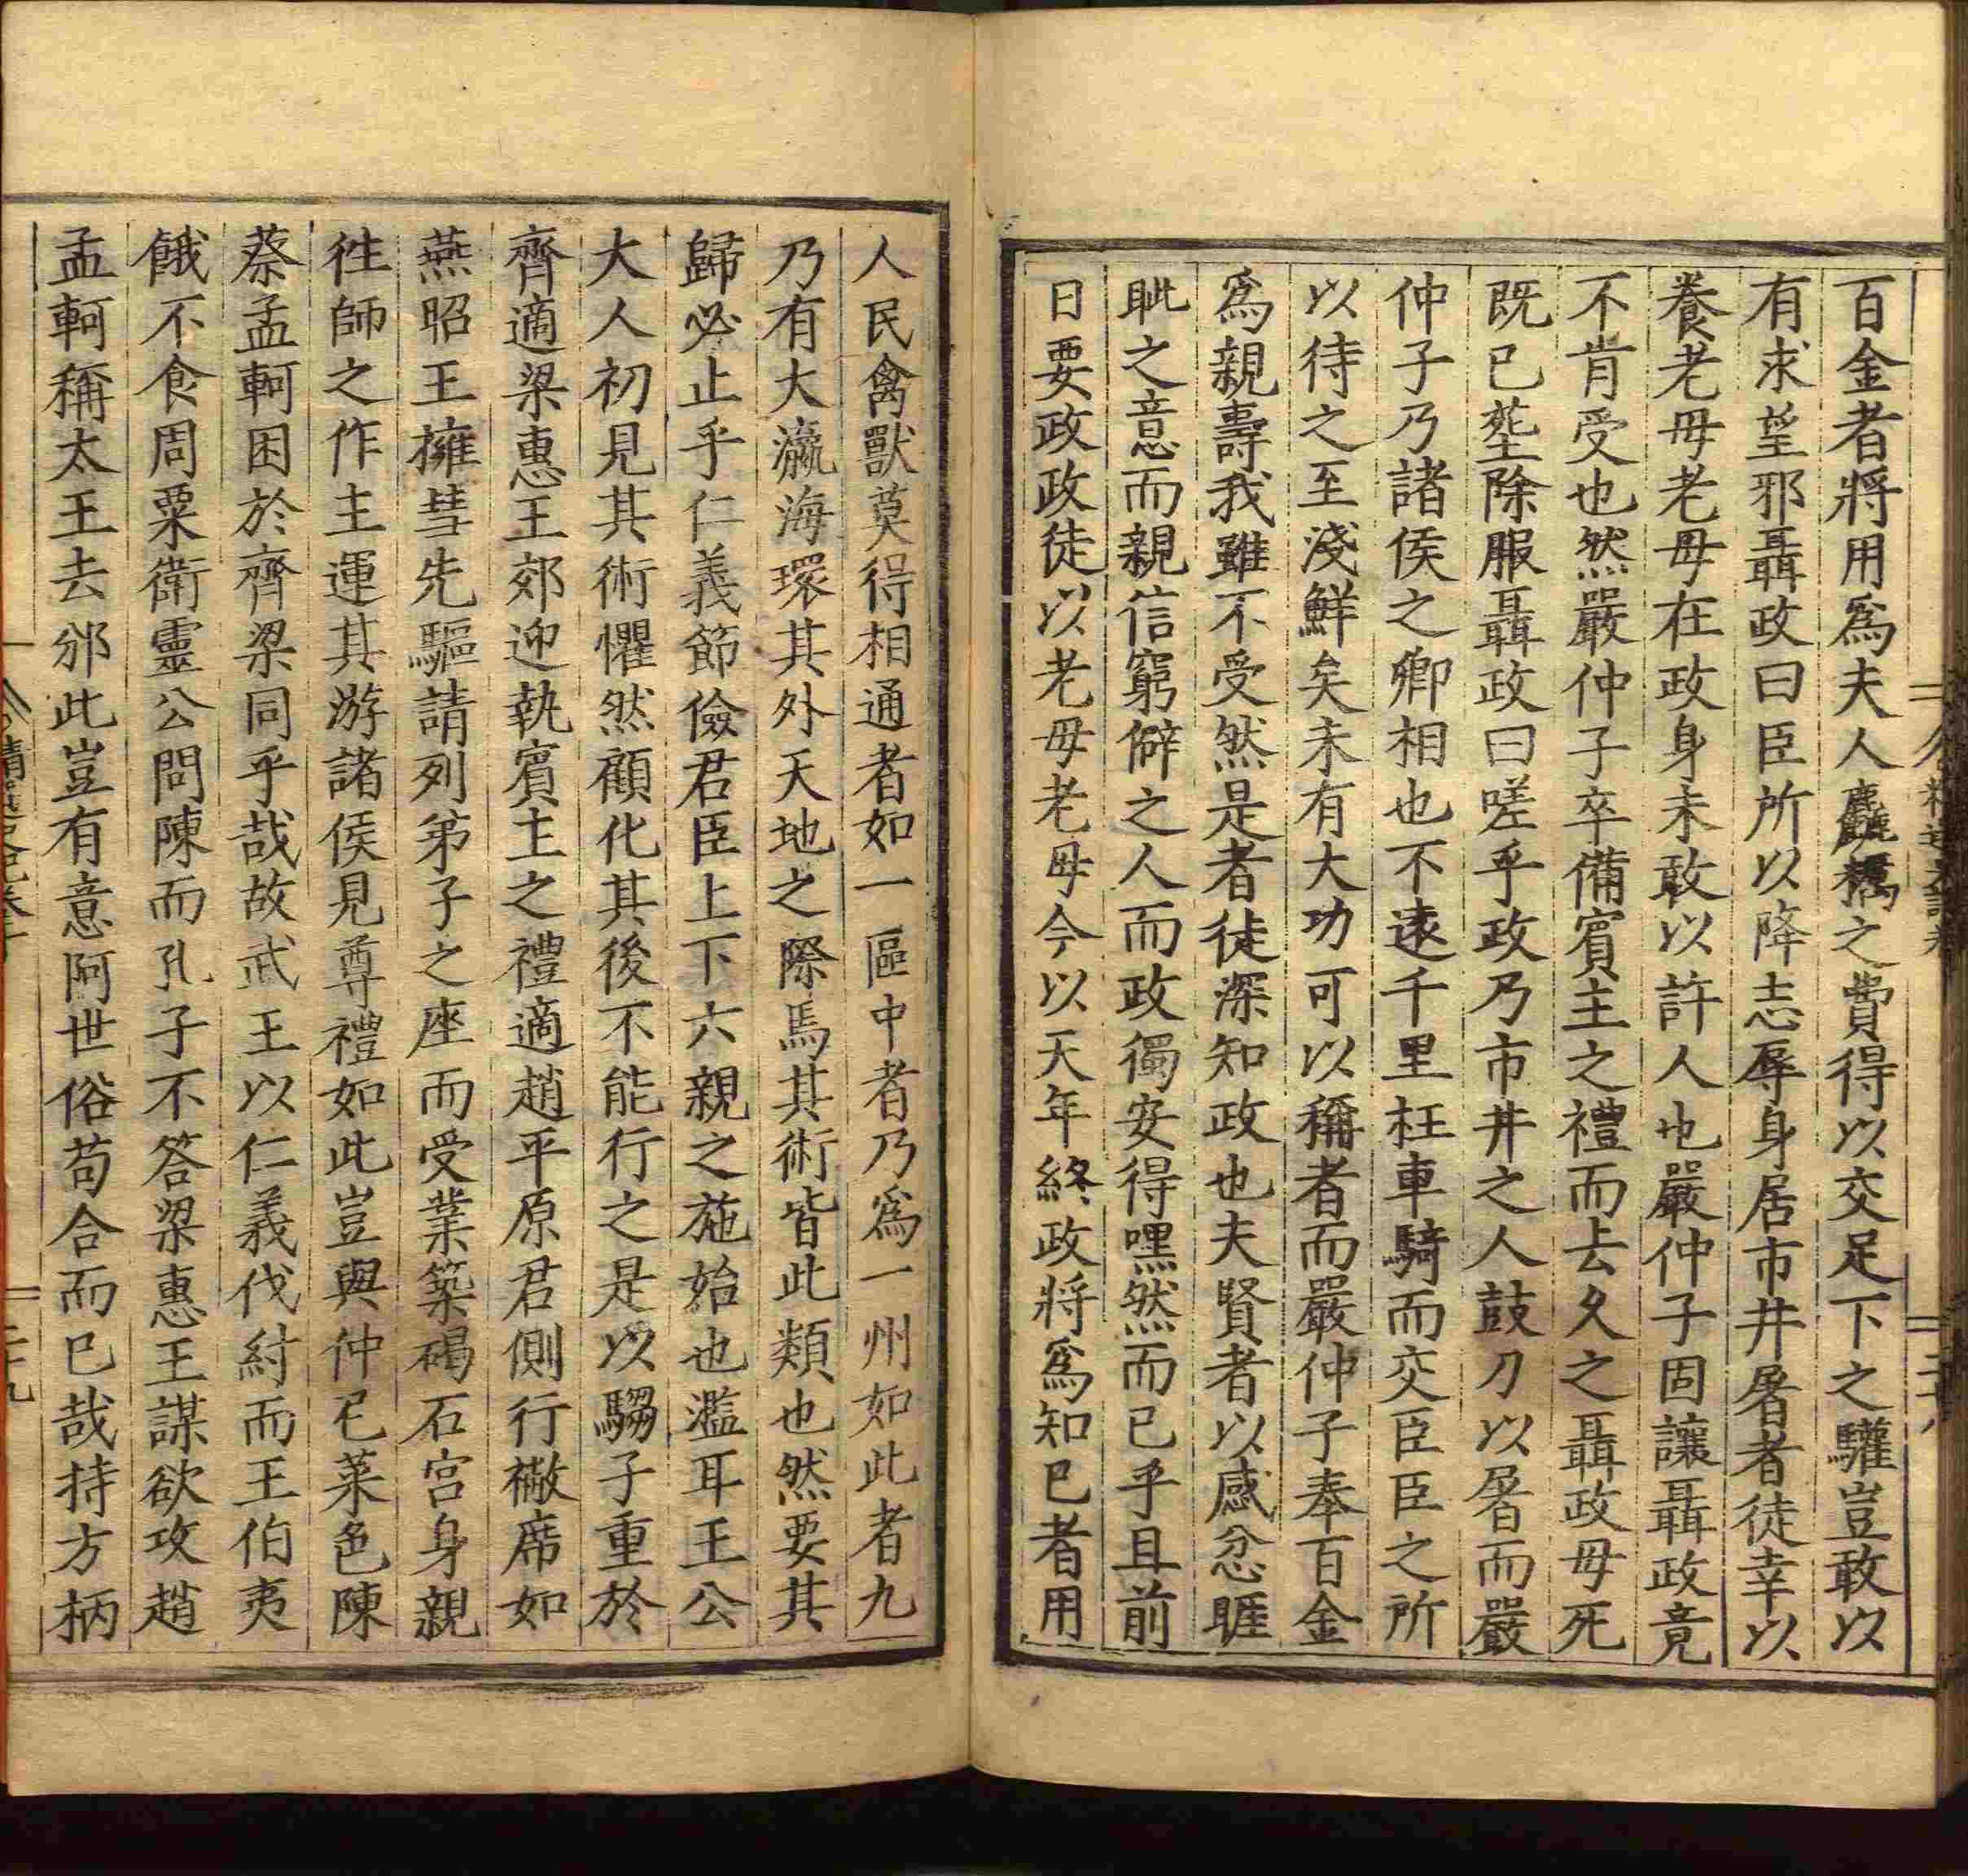 百金者將用爲夫人麤糲之費得以交足下之驩豈敢以
有求望邪聶政曰臣所以降志辱身居市井屠者徒幸以
養老母老母在政身未敢以許人也嚴仲子固讓聶政竟
不肯受也然嚴仲子卒備賓主之禮而去久之聶政母死
既已塟除服聶政曰嗟乎政乃市井之人鼓刀以屠而嚴
仲子乃諸侯之卿相也不遠千里枉車騎而交臣臣之所
以待之至淺鮮矣未有大功可以稱者而嚴仲子奉百金
爲親壽我雖不受然是者徒深知政也夫賢者以感忿睚
眦之意而親信窮僻之人而政獨安得嘿然而已乎且前
日要政政徒以老母老母今以天年終政將爲知已者用
人民禽獸莫得相通者如一區中者乃爲一州如此者九
乃有大瀛海環其外天地之際焉其術皆此類也然要其
歸必止乎仁義節儉君臣上下六親之施始也濫耳王公
大人初見其術懼然顧化其後不能行之是以騶子重於
齊適梁惠王郊迎執賓主之禮適趙平原君側行襒席如
燕昭王擁彗先驅請列弟子之座而受業築碣石宮身親
徃師之作主運其游諸侯見尊禮如此豈與仲尼菜色陳
蔡孟軻困於齊梁同乎哉故武王以仁義伐紂而王伯夷
餓不食周粟衛靈公問陳而孔子不答梁惠王謀欲攻趙
孟軻稱太王去邠此豈有意阿世俗苟合而已哉持方柄
二十九